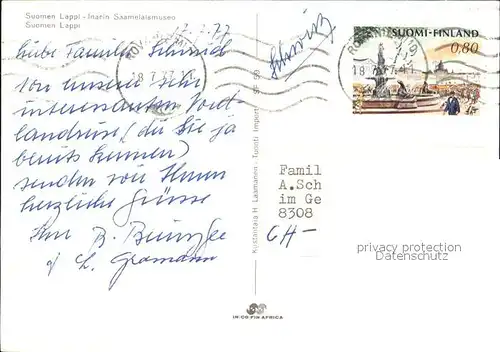 Suomen Lappi - Inarin Saamelaismuseo
Suomen Lappi
7.77
Liebe Familie Schmid
Von unserer sehr
interessanten Nord-
landreise (die Sie ja
bereits kennen)
senden wir Ihnen
herzliche Grüsse
Schweiz
SUOMI-FINLAND
0,80
18.7.77
Kustantaja H. Laamanen - Tuonti Import
Famil
A.Sch
im Ge
8308
CH-
privacy protection
Datenschutz
IN-CO FIN AFRICA